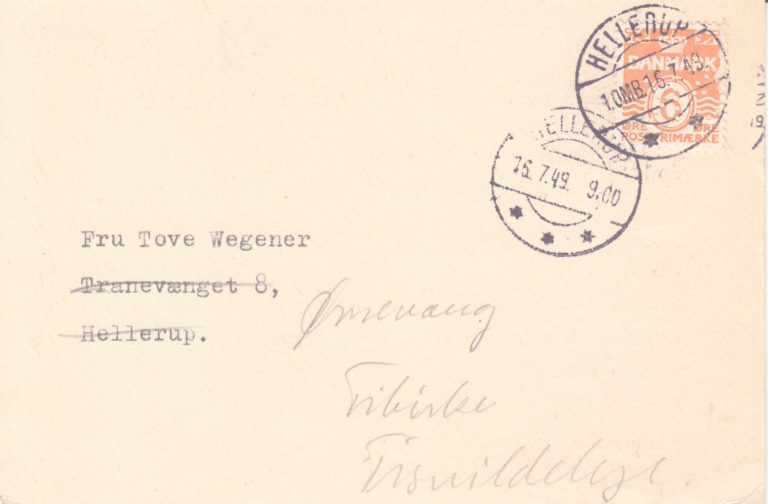 HELLERUP
1.OMB.16.7.49.
DANMARK
6
ØRE ØRE
POSTFRIMÆRKE
HELLERUP
16.7.49. 9.00
Fru Tove Wegener
Tranevænget 8,
Hellerup.
Tibirke
Tisvildeleje.